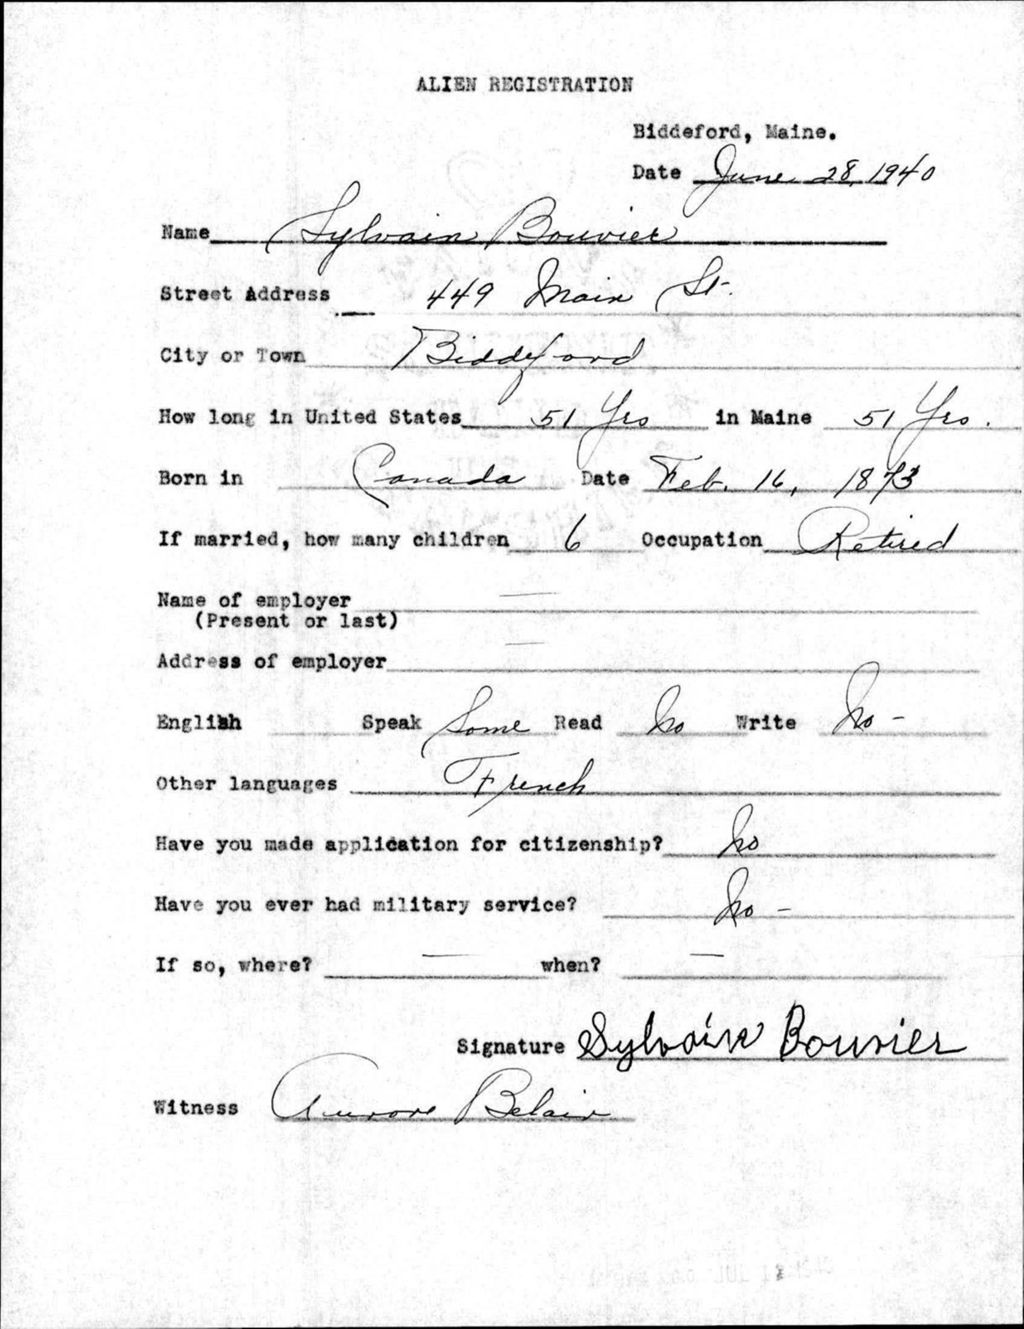 ALIEN REGISTRATION
Biddeford, Maine.
Date June 28, 1940
Name Sylvain Bouvier
Street Address 449 Main St.
City or Town Biddeford
How long in United States 51 Yrs in Maine 51 Yrs.
Born in Canada Date Feb. 16, 1873
If married, how many children 6 Occupation Retired
Name of employer —
(Present or last)
Address of employer —
English Speak Some Read No Write No -
Other languages French
Have you made application for citizenship? No
Have you ever had military service? No -
If so, where? — when? —
Signature Sylvain Bouvier
Witness Aurore Belair